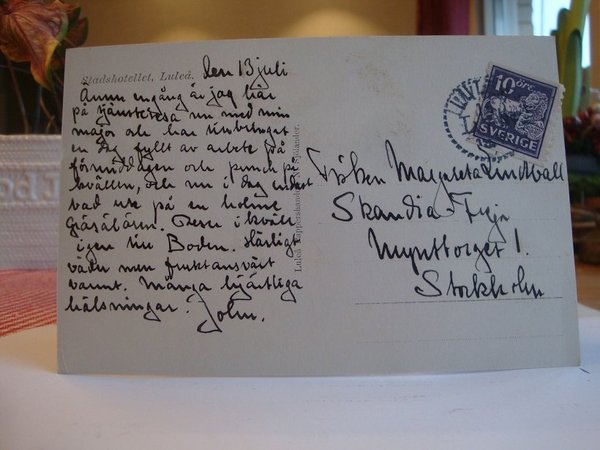 Stadshotellet, Luleå.
den 13 juli
Ännu en gång är jag här
på tjänsteresa nu med min
major och har
en dag fyllt av arbete på
förmiddagen och punch på
kvällen, och nu i dag endast
bad ute på en holme
Gråsjälören. Reser i kväll
igen till Boden. Härligt
väder men fruktansvärt
varmt. Många hjärtliga
hälsningar. John.
Luleå Pappershandel,
10 ÖRE
SVERIGE
Fröken Margareta Lindwall
Skandia Freja
Mynttorget 1.
Stockholm